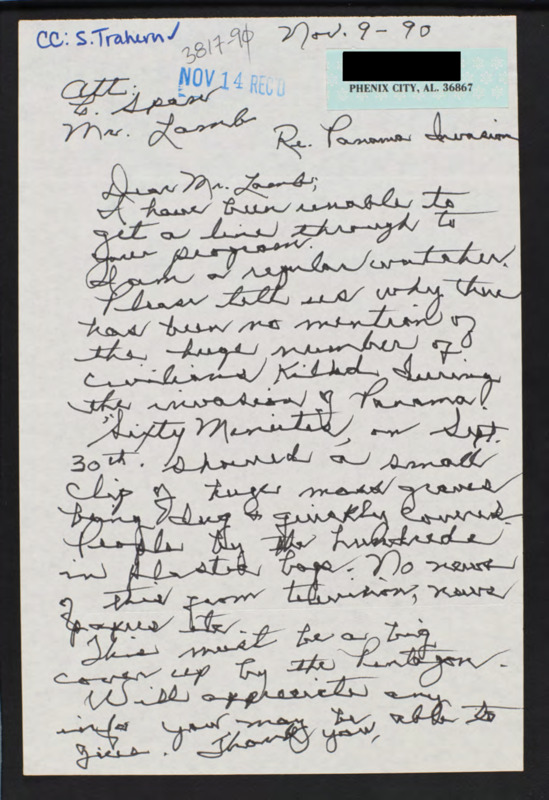 CC: S. Trahern
3817-90
Nov. 9 - 90
NOV 14 REC'D
PHENIX CITY, AL. 36867
Att:
C. Span
Mr. Lamb
Re. Panama Invasion
Dear Mr. Lamb;
I have been unable to
get a line through to
your program.
I am a regular watcher.
Please tell us why there
has been no mention of
the huge number of
civilians killed during
the invasion of Panama!
"Sixty Minutes", on Sept.
30th. showed a small
clip of huge mass graves
being dug & quickly covered.
People by the hundreds
in plastic bags. No news
of this from television, news
papers etc.
This must be a big
cover up by the Pentagon.
Will appreciate any
info you may be able to
give. Thank you,